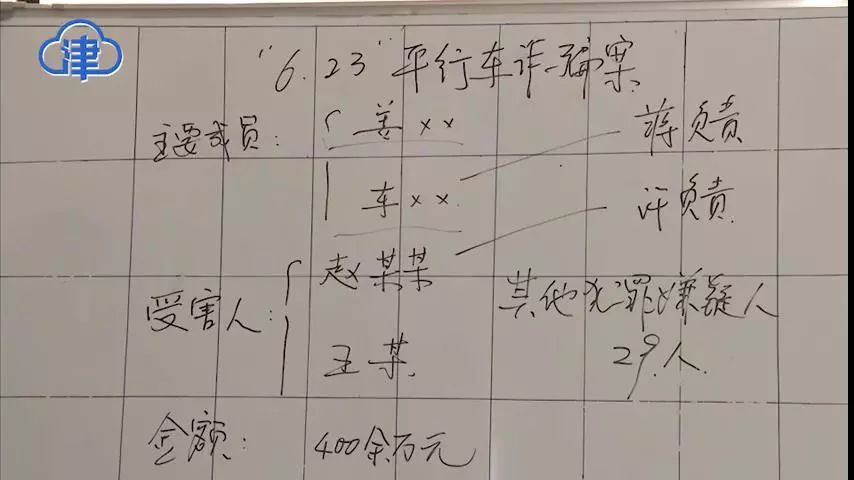 津
“6.23”平行车诈骗案
主要成员: 姜×× 蒋负责
车××. 许负责
受害人: 赵某某
王某. 其他犯罪嫌疑人
29人.
金额: 400余万元